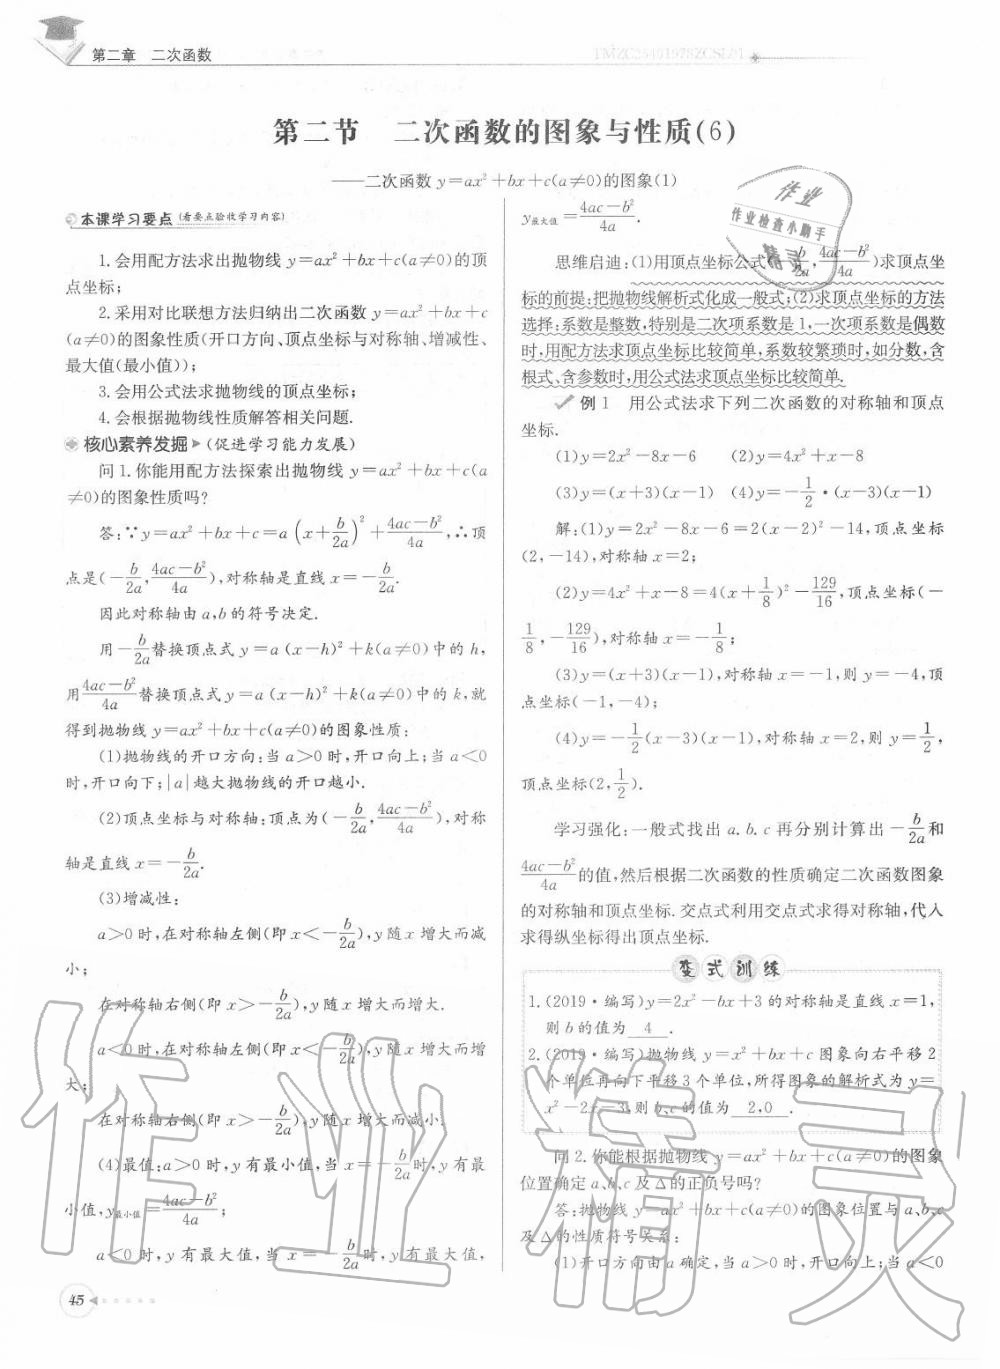 第二章 二次函数
TMZC25401978ZCSL01
第二节 二次函数的图象与性质(6)
——二次函数 y=ax²+bx+c(a≠0)的图象(1)
本课学习要点(看要点验收学习内容)
1.会用配方法求出抛物线 y=ax²+bx+c(a≠0)的顶
点坐标;
2.采用对比联想方法归纳出二次函数 y=ax²+bx+c
(a≠0)的图象性质(开口方向、顶点坐标与对称轴、增减性、
最大值(最小值));
3.会用公式法求抛物线的顶点坐标;
4.会根据抛物线性质解答相关问题.
核心素养发掘(促进学习能力发展)
问 1.你能用配方法探索出抛物线 y=ax²+bx+c(a
≠0)的图象性质吗?
答:∵y=ax²+bx+c=a(x+b/2a)²+(4ac-b²)/4a,∴顶
点是(-b/2a,(4ac-b²)/4a),对称轴是直线 x=-b/2a.
因此对称轴由 a,b 的符号决定.
用-b/2a替换顶点式 y=a(x-h)²+k(a≠0)中的 h,
用(4ac-b²)/4a替换顶点式 y=a(x-h)²+k(a≠0)中的 k,就
得到抛物线 y=ax²+bx+c(a≠0)的图象性质:
(1)抛物线的开口方向:当 a>0 时,开口向上;当 a<0
时,开口向下;|a|越大抛物线的开口越小.
(2)顶点坐标与对称轴:顶点为(-b/2a,(4ac-b²)/4a),对称
轴是直线 x=-b/2a.
(3)增减性:
a>0 时,在对称轴左侧(即 x<-b/2a),y 随 x 增大而减
小;
在对称轴右侧(即 x>-b/2a),y 随 x 增大而增大.
a<0 时,在对称轴左侧(即 x<-b/2a),y 随 x 增大而增
大;
在对称轴右侧(即 x>-b/2a),y 随 x 增大而减小.
(4)最值:a>0 时,y 有最小值,当 x=-b/2a时,y 有最
小值,y最小值=(4ac-b²)/4a;
a<0 时,y 有最大值,当 x=-b/2a时,y 有最大值,
45
y最大值=(4ac-b²)/4a.
思维启迪:(1)用顶点坐标公式(-b/2a,(4ac-b²)/4a)求顶点坐
标的前提:把抛物线解析式化成一般式;(2)求顶点坐标的方法
选择:系数是整数,特别是二次项系数是 1,一次项系数是偶数
时,用配方法求顶点坐标比较简单,系数较繁琐时,如分数,含
根式、含参数时,用公式法求顶点坐标比较简单.
例 1 用公式法求下列二次函数的对称轴和顶点
坐标.
(1)y=2x²-8x-6 (2)y=4x²+x-8
(3)y=(x+3)(x-1) (4)y=-1/2·(x-3)(x-1)
解:(1)y=2x²-8x-6=2(x-2)²-14,顶点坐标
(2,-14),对称轴 x=2;
(2)y=4x²+x-8=4(x+1/8)²-129/16,顶点坐标(-
1/8,-129/16),对称轴 x=-1/8;
(3)y=(x+3)(x-1),对称轴 x=-1,则 y=-4,顶
点坐标(-1,-4);
(4)y=-1/2(x-3)(x-1),对称轴 x=2,则 y=1/2,
顶点坐标(2,1/2).
学习强化:一般式找出 a.b.c 再分别计算出-b/2a和
(4ac-b²)/4a的值,然后根据二次函数的性质确定二次函数图象
的对称轴和顶点坐标.交点式利用交点式求得对称轴,代入
求得纵坐标得出顶点坐标.
变式训练
1.(2019·编写)y=2x²-bx+3 的对称轴是直线 x=1,
则 b 的值为 4 .
2.(2019·编写)抛物线 y=x²+bx+c 图象向右平移 2
个单位再向下平移 3 个单位,所得图象的解析式为 y=
x²-2x-3,则 b、c 的值为 2,0 .
问 2.你能根据抛物线 y=ax²+bx+c(a≠0)的图象
位置确定 a、b、c 及 Δ 的正负号吗?
答:抛物线 y=ax²+bx+c(a≠0)的图象位置与 a、b、c
及 Δ 的性质符号关系:
(1)开口方向由 a 确定,当 a>0 时,开口向上;当 a<0
作业
作业检查小助手
精灵
作业精灵